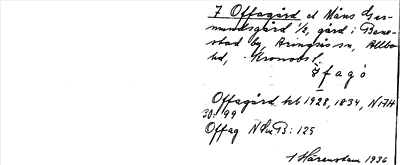 7 Offagård el Måns Ger-
mundsgård 1/2, gård i Bane-
stad by, Aringsås sn, Allbo
hd, Kronobs l.
Ifagó
Offagård hb 1928, 1834, N:o 14
30: 99
Offag N Sm B: 125
1936